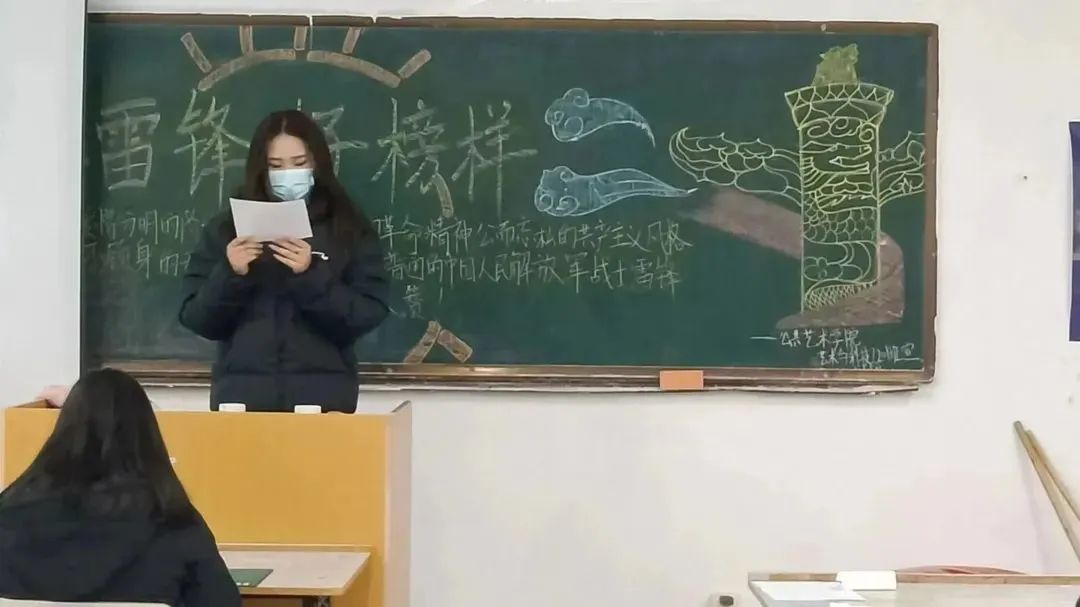 雷锋好榜样
分明的 革命精神公而忘私的共产主义风格
身的 普通的中国人民解放军战士雷锋
赞
—公共艺术学院